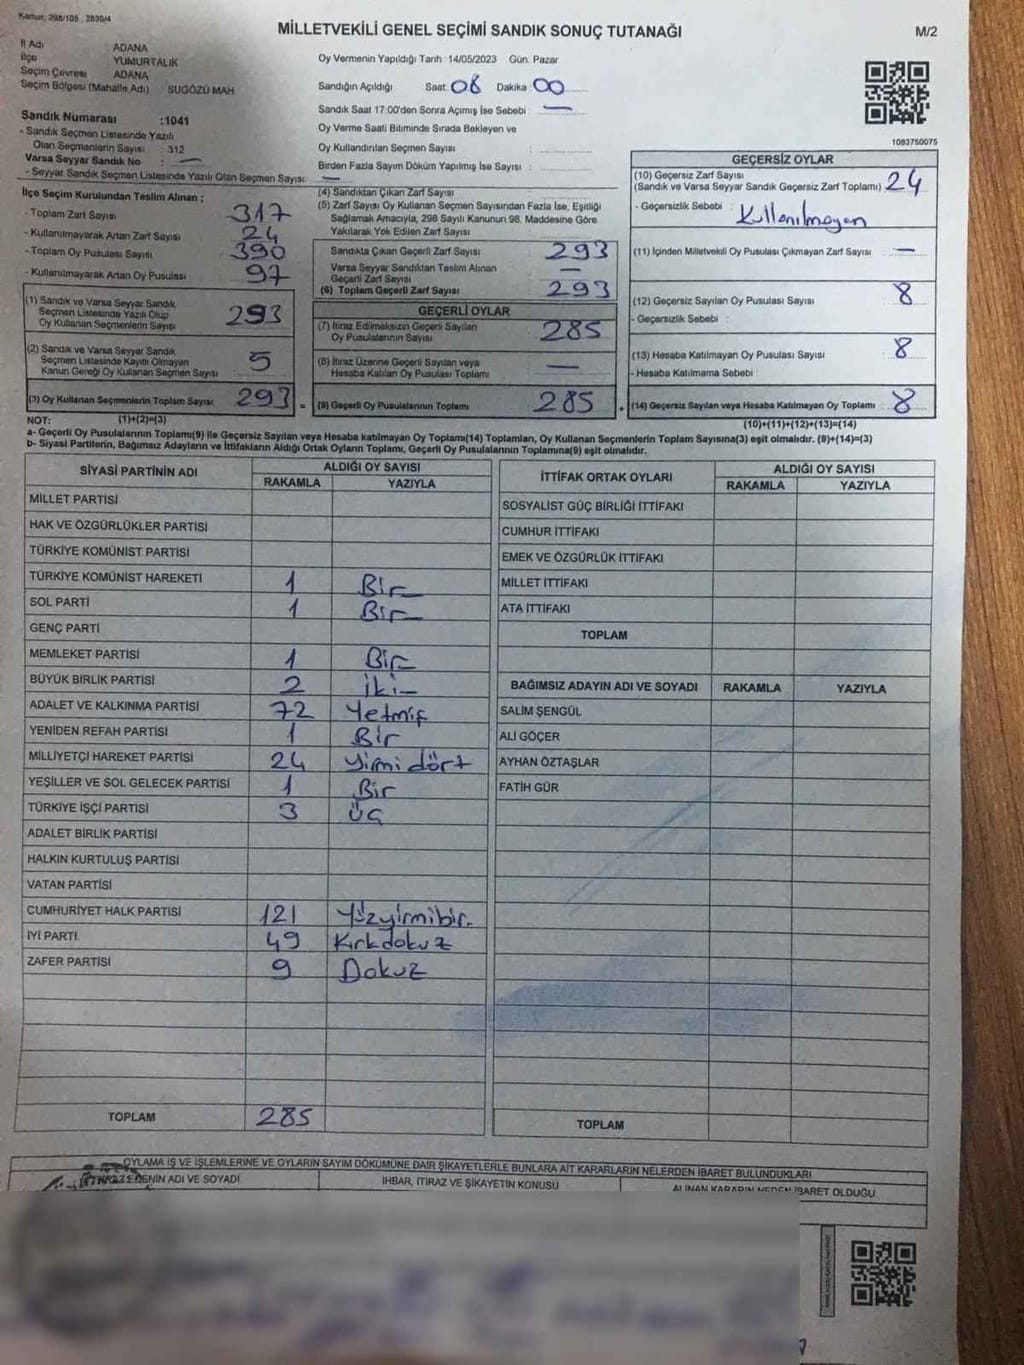 Kanun: 298/105, 2839/4
MİLLETVEKİLİ GENEL SEÇİMİ SANDIK SONUÇ TUTANAĞI
M/2
İl Adı : ADANA
İlçe : YUMURTALIK
Seçim Çevresi : ADANA
Seçim Bölgesi (Mahalle Adı) : SUGÖZÜ MAH
Sandık Numarası :1041
- Sandık Seçmen Listesinde Yazılı
Olan Seçmenlerin Sayısı : 312
Varsa Seyyar Sandık No : —
- Seyyar Sandık Seçmen Listesinde Yazılı Olan Seçmen Sayısı: —
Oy Vermenin Yapıldığı Tarih :14/05/2023 Gün: Pazar
Sandığın Açıldığı Saat: 08 Dakika: 00
Sandık Saat 17:00'den Sonra Açımış İse Sebebi : —
Oy Verme Saati Bitiminde Sırada Bekleyen ve
Oy Kullandırılan Seçmen Sayısı :
Birden Fazla Sayım Döküm Yapılmış İse Sayısı :
1083750075
İlçe Seçim Kurulundan Teslim Alınan :
- Toplam Zarf Sayısı : 317
- Kullanılmayarak Artan Zarf Sayısı : 24
- Toplam Oy Pusulası Sayısı : 390
- Kullanılmayarak Artan Oy Pusulası : 97
(1) Sandık ve Varsa Seyyar Sandık
Seçmen Listesinde Yazılı Olup
Oy Kullanan Seçmenlerin Sayısı : 293
(2) Sandık ve Varsa Seyyar Sandık
Seçmen Listesinde Kayıtlı Olmayan
Kanun Gereği Oy Kullanan Seçmen Sayısı : 5
(3) Oy Kullanan Seçmenlerin Toplam Sayısı : 293
(4) Sandıktan Çıkan Zarf Sayısı :
(5) Zarf Sayısı Oy Kullanan Seçmen Sayısından Fazla İse, Eşitliği
Sağlamak Amacıyla, 298 Sayılı Kanunun 98. Maddesine Göre
Yakılarak Yok Edilen Zarf Sayısı :
Sandıkta Çıkan Geçerli Zarf Sayısı : 293
Varsa Seyyar Sandıktan Teslim Alınan
Geçerli Zarf Sayısı : —
(6) Toplam Geçerli Zarf Sayısı : 293
GEÇERLİ OYLAR
(7) İtiraz Edilmeksizin Geçerli Sayılan
Oy Pusulasının Sayısı : 285
(8) İtiraz Üzerine Geçerli Sayılan veya
Hesaba Katılan Oy Pusulası Toplamı : —
= (9) Geçerli Oy Pusulalarının Toplamı : 285
GEÇERSİZ OYLAR
(10) Geçersiz Zarf Sayısı
(Sandık ve Varsa Seyyar Sandık Geçersiz Zarf Toplamı) : 24
- Geçersizlik Sebebi : Kullanılmayan
(11) İçinden Milletvekili Oy Pusulası Çıkmayan Zarf Sayısı : —
(12) Geçersiz Sayılan Oy Pusulası Sayısı : 8
- Geçersizlik Sebebi :
(13) Hesaba Katılmayan Oy Pusulası Sayısı : 8
- Hesaba Katılmama Sebebi :
+ (14) Geçersiz Sayılan veya Hesaba Katılmayan Oy Toplamı : 8
NOT: (1)+(2)=(3)
(10)+(11)+(12)+(13)=(14)
a- Geçerli Oy Pusulalarının Toplamı(9) ile Geçersiz Sayılan veya Hesaba katılmayan Oy Toplamı(14) Toplamları, Oy Kullanan Seçmenlerin Toplam Sayısına(3) eşit olmalıdır. (9)+(14)=(3)
b- Siyasi Partilerin, Bağımsız Adayların ve İttifakların Aldığı Ortak Oyların Toplamı, Geçerli Oy Pusulalarının Toplamına(9) eşit olmalıdır.
SİYASİ PARTİNİN ADI ALDIĞI OY SAYISI
RAKAMLA YAZIYLA
MİLLET PARTİSİ
HAK VE ÖZGÜRLÜKLER PARTİSİ
TÜRKİYE KOMÜNİST PARTİSİ
TÜRKİYE KOMÜNİST HAREKETİ 1 Bir
SOL PARTİ 1 Bir
GENÇ PARTİ
MEMLEKET PARTİSİ 1 Bir
BÜYÜK BİRLİK PARTİSİ 2 iki
ADALET VE KALKINMA PARTİSİ 72 Yetmiş
YENİDEN REFAH PARTİSİ 1 Bir
MİLLİYETÇİ HAREKET PARTİSİ 24 yirmi dört
YEŞİLLER VE SOL GELECEK PARTİSİ 1 Bir
TÜRKİYE İŞÇİ PARTİSİ 3 üç
ADALET BİRLİK PARTİSİ
HALKIN KURTULUŞ PARTİSİ
VATAN PARTİSİ
CUMHURİYET HALK PARTİSİ 121 Yüzyirmibir
İYİ PARTİ 49 Kırkdokuz
ZAFER PARTİSİ 9 Dokuz
TOPLAM 285
İTTİFAK ORTAK OYLARI ALDIĞI OY SAYISI
RAKAMLA YAZIYLA
SOSYALİST GÜÇ BİRLİĞİ İTTİFAKI
CUMHUR İTTİFAKI
EMEK VE ÖZGÜRLÜK İTTİFAKI
MİLLET İTTİFAKI
ATA İTTİFAKI
TOPLAM
BAĞIMSIZ ADAYIN ADI VE SOYADI RAKAMLA YAZIYLA
SALİM ŞENGÜL
ALİ GÖÇER
AYHAN ÖZTAŞLAR
FATİH GÜR
TOPLAM
OYLAMA İŞ VE İŞLEMLERİNE VE OYLARIN SAYIM DÖKÜMÜNE DAİR ŞİKAYETLERLE BUNLARA AİT KARARLARIN NELERDEN İBARET BULUNDUKLARI
ADI VE SOYADI
İHBAR, İTİRAZ VE ŞİKAYETİN KONUSU
ALINAN KARARIN NEDEN İBARET OLDUĞU